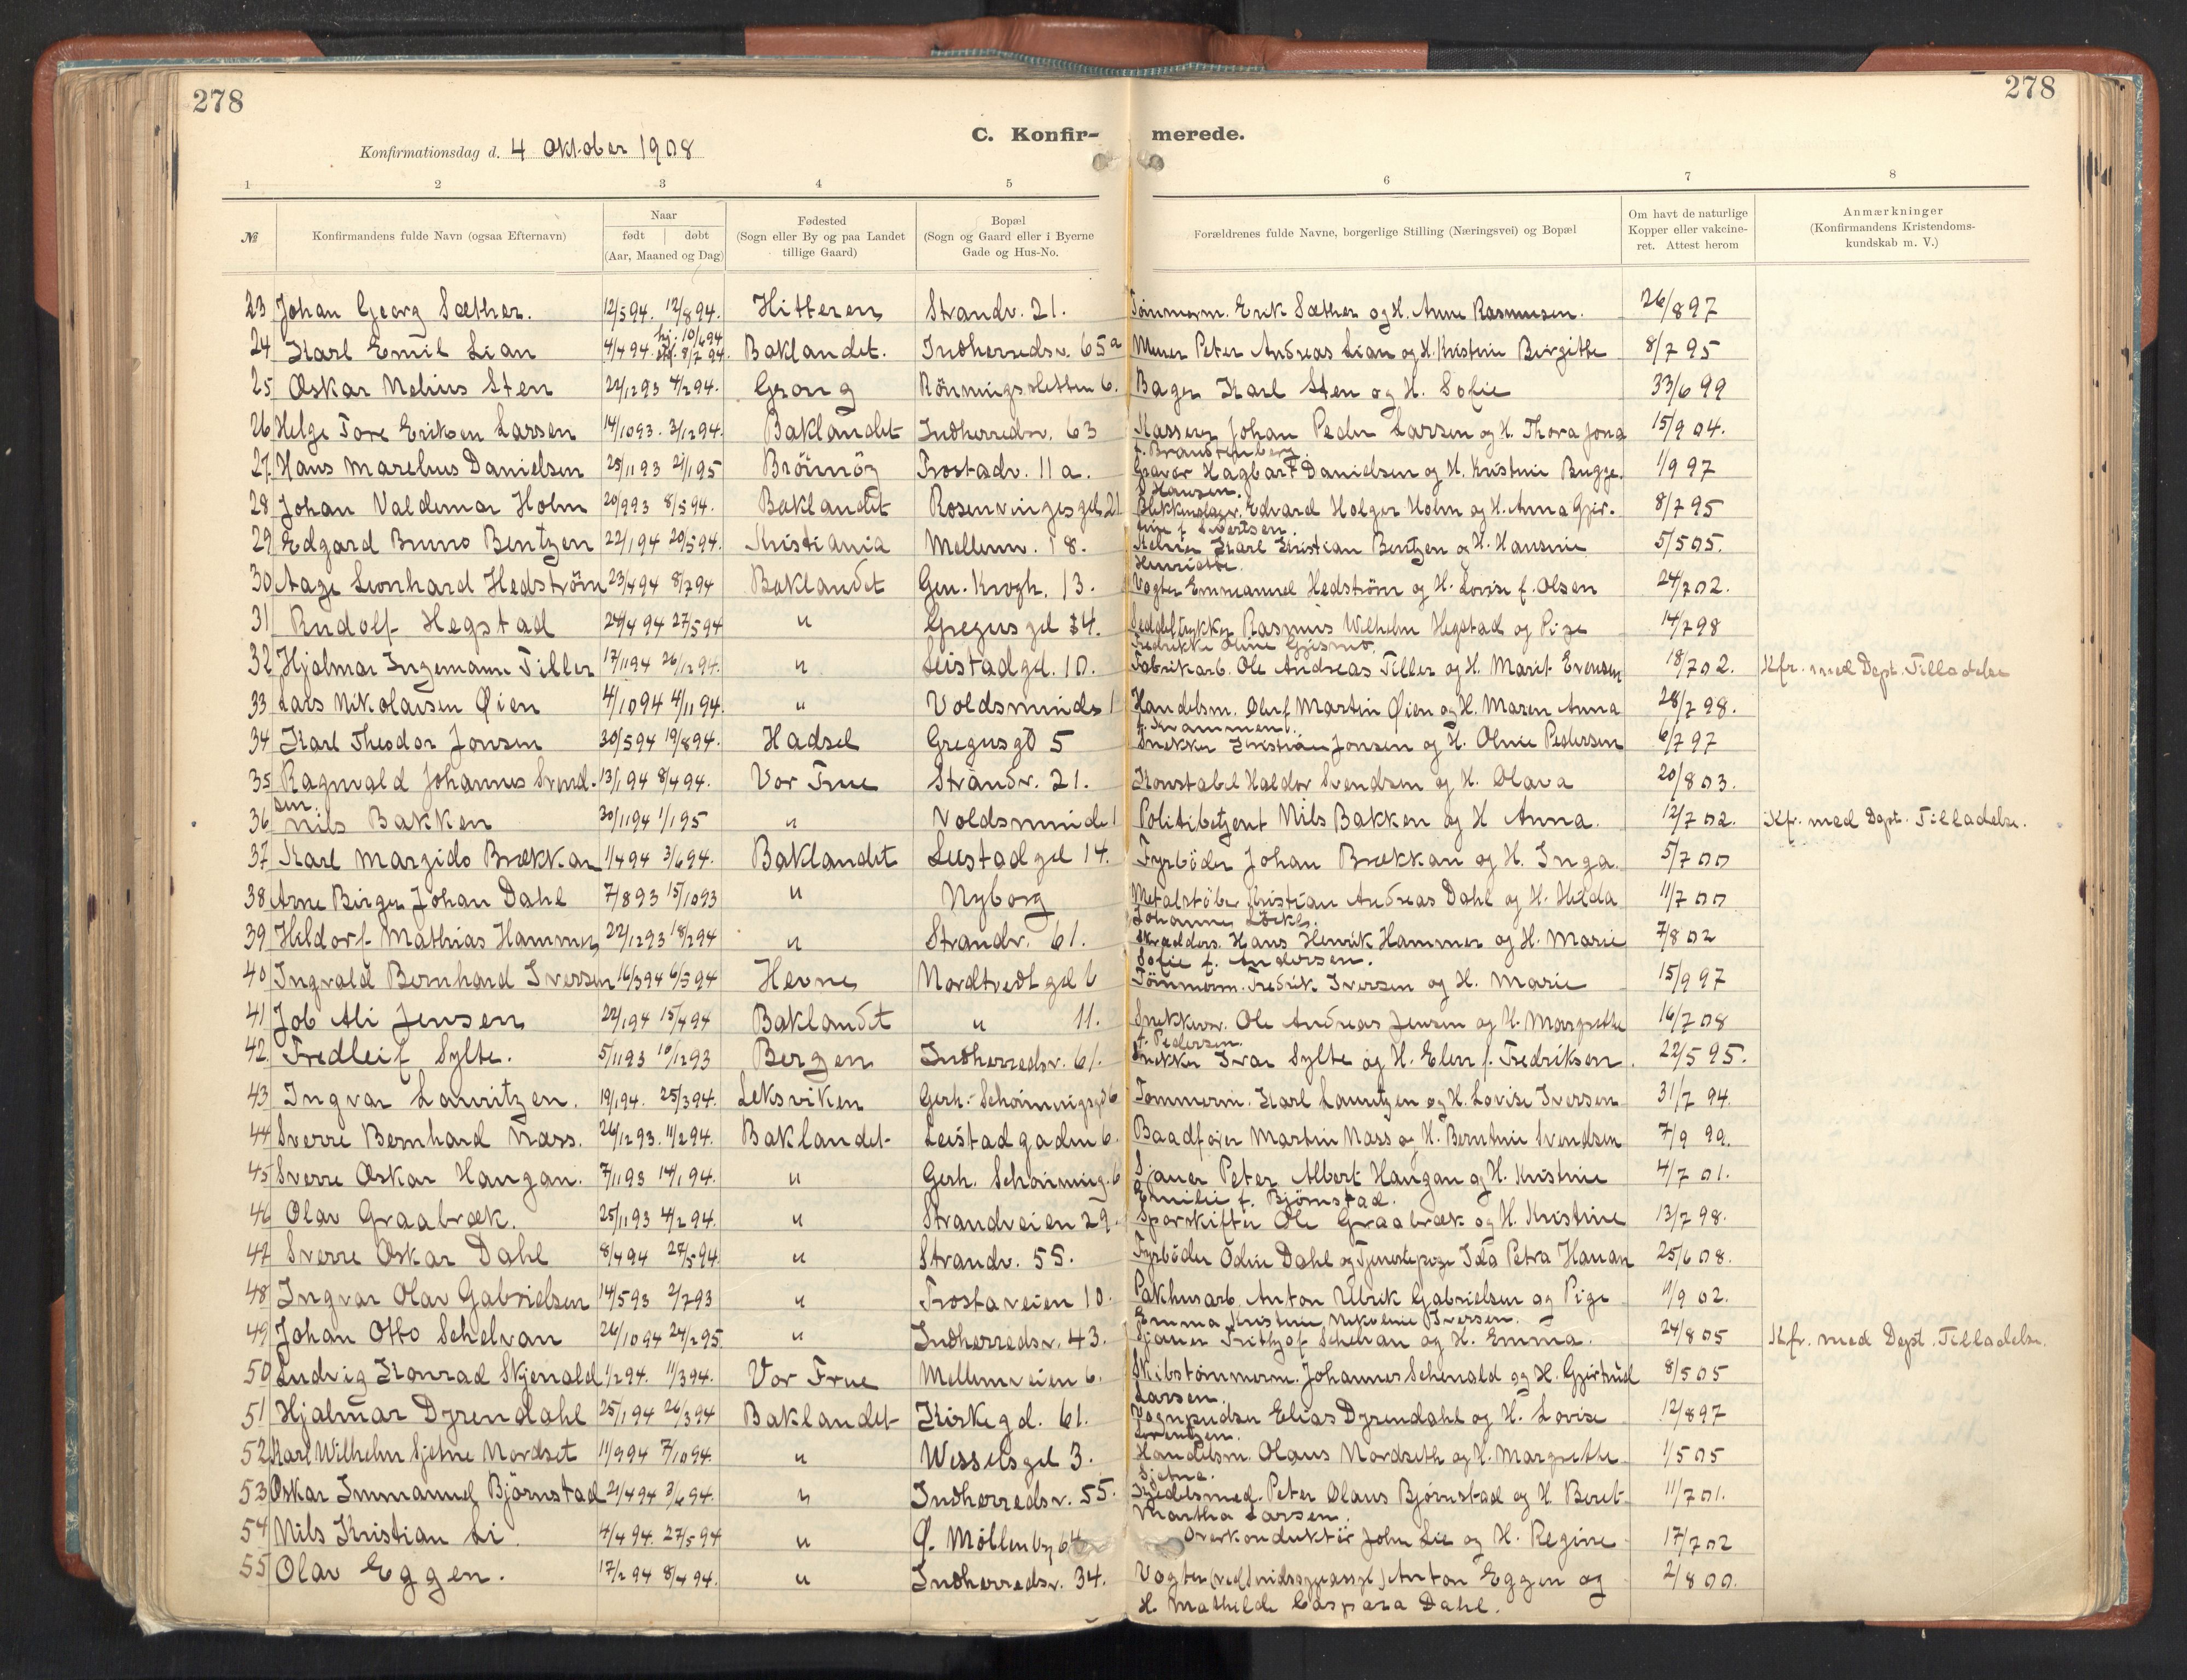 278
278
C. Konfir-
merede.
Konfirmationsdag d. 4 Oktober 1908
1 2 3 4 5 6 7 8
№
Konfirmandens fulde Navn (ogsaa Efternavn)
Naar
født | døbt
(Aar, Maaned og Dag)
Fødested
(Sogn eller By og paa Landet
tillige Gaard)
Bopæl
(Sogn og Gaard eller i Byerne
Gade og Hus-No.
Forældrenes fulde Navne, borgerlige Stilling (Næringsvei) og Bopæl
Om havt de naturlige
Kopper eller vakcine-
ret. Attest herom
Anmærkninger
(Konfirmandens Kristendoms-
kundskab m. V.)
23 Johan Georg Sæther. 12/5 94. 12/8 94. Hitteren Strandv. 21. Tømmerm. Erik Sæther og H. Anne Rasmussen. 26/8 97
hj. 10/4 94
24 Karl Emil Lian 4/4 94. std. 8/7 94. Baklandet. Indherredsv. 65a Murer Peter Andreas Lian og H. Kristine Birgitte 8/7 95
25 Oskar Melius Sten 22/12 93 4/2 94. Grong Rönningsletten 6. Bager Karl Sten og H. Sofie 33/6 99
26 Helge Tore Eriksen Larsen 14/10 93. 3/12 94. Baklandet Indherredsv. 63 Kasserer Johan Peder Larsen og H. Thora Jona 15/9 04.
f. Brandtenberg.
27 Hans Marelius Danielsen 25/11 93 21/1 95 Brönnöy Frostadv. 11 a. Gravør Hagbart Danielsen og H. Kristine Bugge 1/9 97
S. Hansen.
28 Johan Valdemar Holm 20/9 93 8/5 94. Baklandet Rosenvingesgd. 21 Blikkenslager. Edvard Holger Holm og H. Anna Gjer- 8/7 95
tine f. Sivertsen.
29 Edgard Bruno Bentzen 22/1 94 20/5 94. Kristiania Mellemv. 18. Kelner Karl Kristian Bentzen og H. Hansine 5/5 05.
Henriette.
30 Aage Leonhard Hedström 23/4 94 8/7 94 Baklandet Gen. Krogh. 13. Vogter Emmanuel Hedström og H. Lovise f. Olsen 24/7 02.
31 Rudolf Hegstad 24/4 94 27/5 94 " Gregus gd 34. Seddeltrykker Rasmus Wilhelm Hegstad og Pige 14/7 98
Fredrikke Oline Gjismo.
32 Hjalmar Ingemann Tiller 17/11 94 26/12 94. " Leistadgd. 10. Fabrikarb. Ole Andreas Tiller og H. Marit Evensen 18/7 02. Kfr. med Dept. Tilladelse
33 Lars Nikolaisen Øien 4/10 94 4/11 94. " Voldsminde 1 Handelsm. Oluf Martin Øien og H. Maren Anna 28/7 98.
f. Krammen.
34 Karl Theodor Jonsen 30/5 94 19/8 94. Hadsel Gregusgd 5 Snekker Kristian Jonsen og H. Oline Pedersen 6/7 97
35 Ragnvald Johannes Svend- 13/1 94 8/4 94. Vor Frue Strandv. 21. Konstabel Haldor Svendsen og H. Olava 20/8 03.
sen.
36 Nils Bakken 30/11 94 1/1 95 " Voldsminde 1 Politibetjent Nils Bakken og H Anna. 12/7 02. Kfr. med Dept. Tilladelse.
37 Karl Margido Brækkan 1/4 94 3/6 94. Baklandet Leistadgd 14. Fyrböder Johan Brækkan og H. Inga. 5/7 00
38 Arne Birger Johan Dahl 7/8 93 15/10 93 " Nyborg Metalstöber Kristian Andreas Dahl og H. Hilda 11/7 00
Johanne Löcke.
39 Hildorf Mathias Hammer 22/12 93 18/2 94 " Strandv. 61. Skrædders. Hans Henrik Hammer og H. Marie 7/8 02
Sofie f. Andersen.
40 Ingvald Bernhard Iversen 16/3 94 6/5 94 Hevne Nordtvedt gd 6 Tömmerm. Fredrik Iversen og H. Marie 15/9 97
41 Job Ali Jensen 22/1 94 15/4 94 Baklandet " 11. Snekkersv. Ole Andreas Jensen og H. Margrethe 16/7 08
f. Pedersen.
42. Fredleif Sylte. 5/11 93 10/12 93 Bergen Indherredsv. 61. Snekker Ivar Sylte og H. Elen f. Fredriksen. 22/5 95.
43 Ingvar Lauritzen. 19/1 94. 25/3 94. Leksviken Gerh. Schönningsgd 6 Tömmerm. Karl Lauritzen og H. Lovise Iversen 31/7 94.
44 Sverre Bernhard Næss. 26/12 93. 11/2 94. Baklandet Leistad gaden 6. Baadfører Martin Næss og H. Berntine Svendsen 7/9 99.
45 Sverre Oskar Haugan. 7/11 93 14/1 94. " Gerh. Schönning. 6 Sjauer Peter Albert Haugan og H. Kristine 4/7 01.
Emilie f. Bjørnstad.
46 Olav Graabræk. 25/11 93 4/2 94. " Strandveien 29. Sporskifter Ole Graabræk og H. Kristine 13/7 98.
47 Sverre Oskar Dahl 8/4 94 27/5 94. " Strandv. 55. Fyrböder Odin Dahl og Tjenestepige Ida Petra Hanan 25/6 08.
48 Ingvar Olav Gabrielsen 14/5 93 2/7 93 " Frostaveien 10. Pakhusarb. Anton Ulrik Gabrielsen og Pige 4/9 02.
Emma Kristine Nikoline Iversen.
49 Johan Otto Schelvan 26/10 94 24/2 95. " Indherredsv. 43. Sjauer Frithjof Schelvan og H. Emma. 24/8 05 Kfr. med Dept. Tilladelse.
50 Ludvig Konrad Skjenald 1/2 94. 11/3 94. Vor Frue Mellemveien 6. Skibstömmerm. Johannes Schenald og H. Gjertrud 8/5 05
Larsen.
51 Hjalmar Dyrendahl 25/1 94 26/3 94 Baklandet Kirkegd. 61. Vognpudser Elias Dyrendahl og H. Lovise 12/8 97
Lorentzen.
52 Karl Wilhelm Sjetne Nordset 11/9 94 7/10 94. " Wesselsgd 3. Handelsm. Olaus Nordseth og H. Margrethe 1/5 05
Sjetne.
53 Oskar Immanuel Björnstad 21/4 94 3/6 94. " Indherredsv. 55. Kjedelsmed. Peter Olaus Bjørnstad og H. Beret 11/7 01.
Martha Larsen.
54 Nils Kristian Li. 4/4 94. 27/5 94 " Ø. Möllenbg 64 Overkonduktör John Lie og H. Regine 17/7 02
55 Olav Eggen. 17/2 94 8/4 94. " Indherredsv. 34. Vogter Anton Eggen og 2/8 00.
H. Mathilde Caspara Dahl.